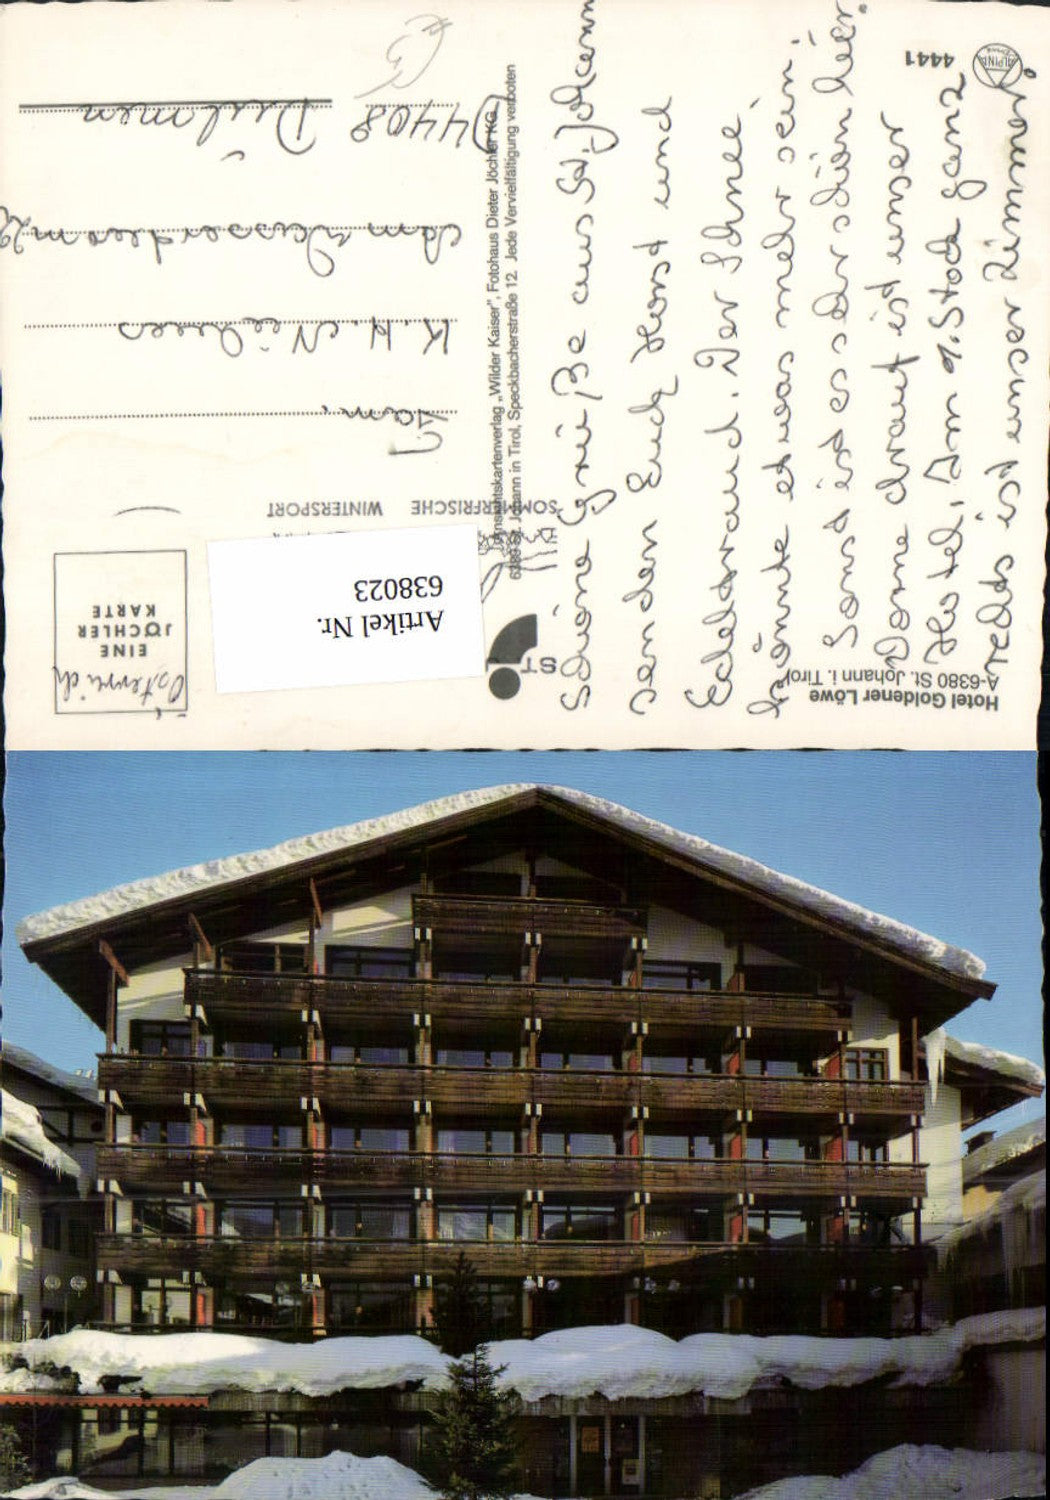 Hotel Goldener Löwe
A-6380 St. Johann i. Tirol
4441
ALPINE
Schöne Grüße aus St. Johann
senden Euch Horst und
Edeltraud. Der Schnee
könnte etwas mehr sein.
Sonst ist es sehr schön hier.
Vorne drauf ist unser
Hotel, Im 1. Stock ganz
rechts ist unser Zimmer
Ansichtskartenverlag „Wilder Kaiser", Fotohaus Dieter Jöchler KG,
6380 St. Johann in Tirol, Speckbacherstraße 12. Jede Vervielfältigung verboten
ST
SOMMERFRISCHE WINTERSPORT
Artikel Nr.
638023
EINE
JÖCHLER
KARTE
Österreich
Fam.
K. H.
Am
D 4408 Dülmen